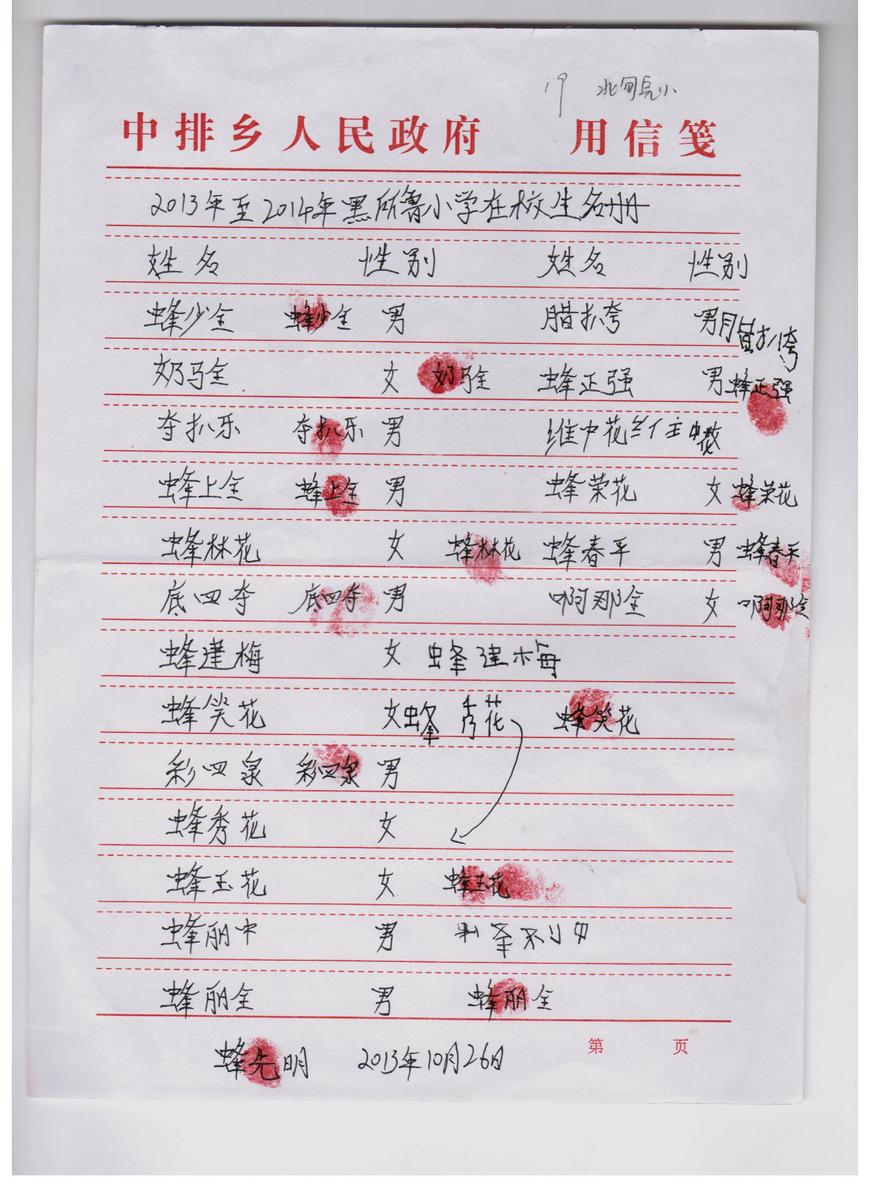 19 北甸完小
中排乡人民政府 用信笺
2013年至2014年黑所鲁小学在校生名册
姓名 性别 姓名 性别
蜂少全 蜂少全 男 腊扒夸 男 腊扒夸
奶马全 女 奶马全 蜂正强 男 蜂正强
夺扒乐 夺扒乐 男 维中花 维中花
蜂上全 蜂上全 男 蜂荣花 女 蜂荣花
蜂林花 女 蜂林花 蜂春平 男 蜂春平
底四夺 底四夺 男 啊那全 女 啊那全
蜂建梅 女 蜂建梅
蜂笑花 女 蜂秀花 蜂笑花
彩四泉 彩四泉 男
蜂秀花 女
蜂玉花 女 蜂玉花
蜂丽中 男
蜂丽全 男 蜂丽全
蜂先明 2013年10月26日
第 页